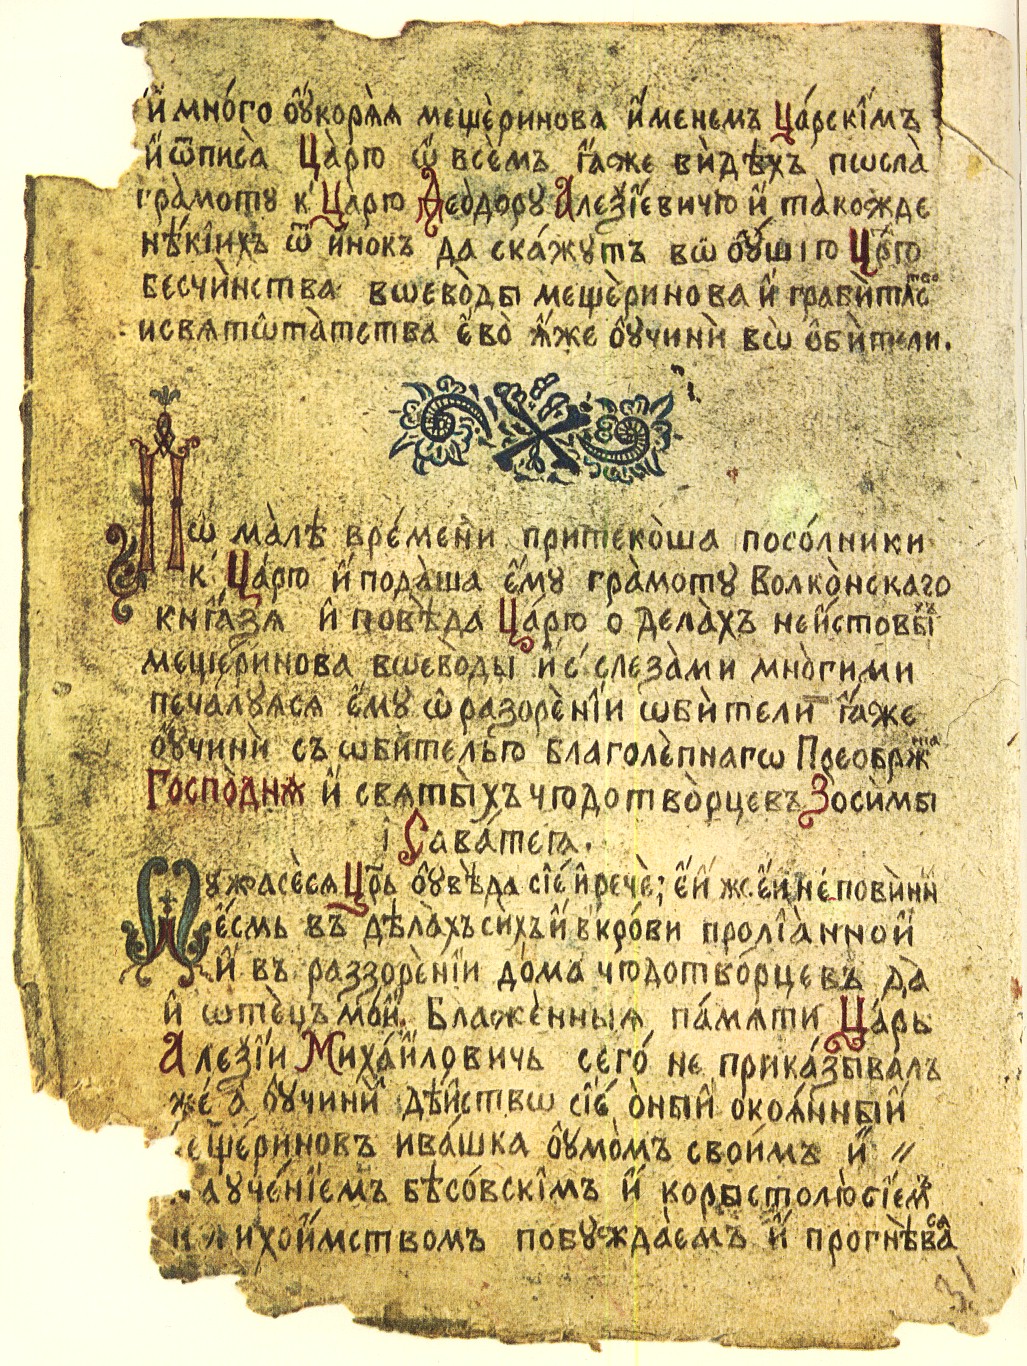 и҆ мно́го ѹ҆коря̀я мещѐринова и҆менемъ Ца́рскі́мъ
и҆ ѿписа̀ Царю̀ ѡ҆ все́мъ ꙗ҆́же ви̇дѣхъ пѡсла̀
гра̀моту к Ца̀рю Ѳео́дору Алеѯі́евичю и҆ такожде
нѣ́кіихъ ѿ и҆нокъ да ска́жутъ вѡ ѹ҆́шію Цр҃ю
бесчи̇нства вѡево̀ды мещѐринова и҆ граби̇тлⷭ҇тво
и свято̑та̀тства є҆во̀ ꙗ҆́же ѹ҆чини̇ всѡ̀ о҆би̇тели.
Пѡ ма̀лѣ вре́мени притеко̀ша посо́лники
к Ца́рю и҆ пода̀ша є҆му гра̀моту Волко̀нскаго
кня́зя и҆ повѣ̀да Ца́рю о делахъ неи́стовыхъ
мещѐринова вѡеводы и҆ с слеза̀ми мно̀гими
печа́луяся є҆му ѡ҆ разорѐніи ѡби̇тели ꙗ҆́же
ѹ҆чини̇ съ ѡби̇телью благолѐпнагѡ Преобржнїа
Госпо̀дня и҆ святы́хъ чюдотво̀рцевъ Зоси̇мы
і Сава́тея.
Ужасѐся Цр҃ь ѹ҆вѣ̀да сїѐ и҆ речѐ; є҆́й же є҆́й не пови̇нн
є҆́смь въ дѣла̀хъ си́хъ и҆ в кро́ви пролїа̀нной
и҆ въ раззорѐніи до́ма чюдотво́рцевъ да
и҆ ѡтѐцъ мой Блажѐнныя па́мяти Ца́рь
Алеѯі́й Миха́йловичь сего́ не прика́зывалъ
же́ а ѹ҆чини̇ дѣ́йствѡ сїѐ о́ный окоя́нный
мещѐриновъ ива́шка ѹ҆мо̀мъ свои́мъ и҆ //
науче́ніемъ бѣсо́вскімъ и҆ корыстолю́сіемъ
и лихои́мствомъ побужда̀емъ и҆ прогнѣ̀вася